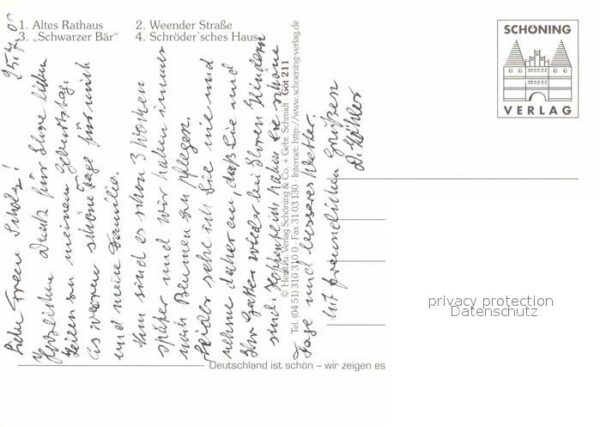 1. Altes Rathaus 2. Weender Straße
3. „Schwarzer Bär" 4. Schröder'sches Haus
SCHÖNING
VERLAG
25.7.0
Liebe Frau Scholz!
Herzlichen Dank für Ihre lieben
Zeilen zu meinem Geburtstag.
Es waren schöne Tage für mich
und meine Familie.
Nun sind es schon 3 Wochen
später und wir haben immer
noch Blumen zu pflegen.
Leider sehe ich Sie nie und
nehme daher an, daß Sie und
Ihr Gatte wieder bei Ihren Kindern
sind. Hoffentlich haben Sie schöne
Tage und besseres Wetter.
Mit freundlichen Grüßen
D. Köhler
© Verlag Schöning & Co. + Gebr. Schmidt · Göt 211
Tel. (04 51) 310 310 · Fax 31 03 130 · Internet: http://www.schoening-verlag.de
Deutschland ist schön – wir zeigen es
privacy protection
Datenschutz